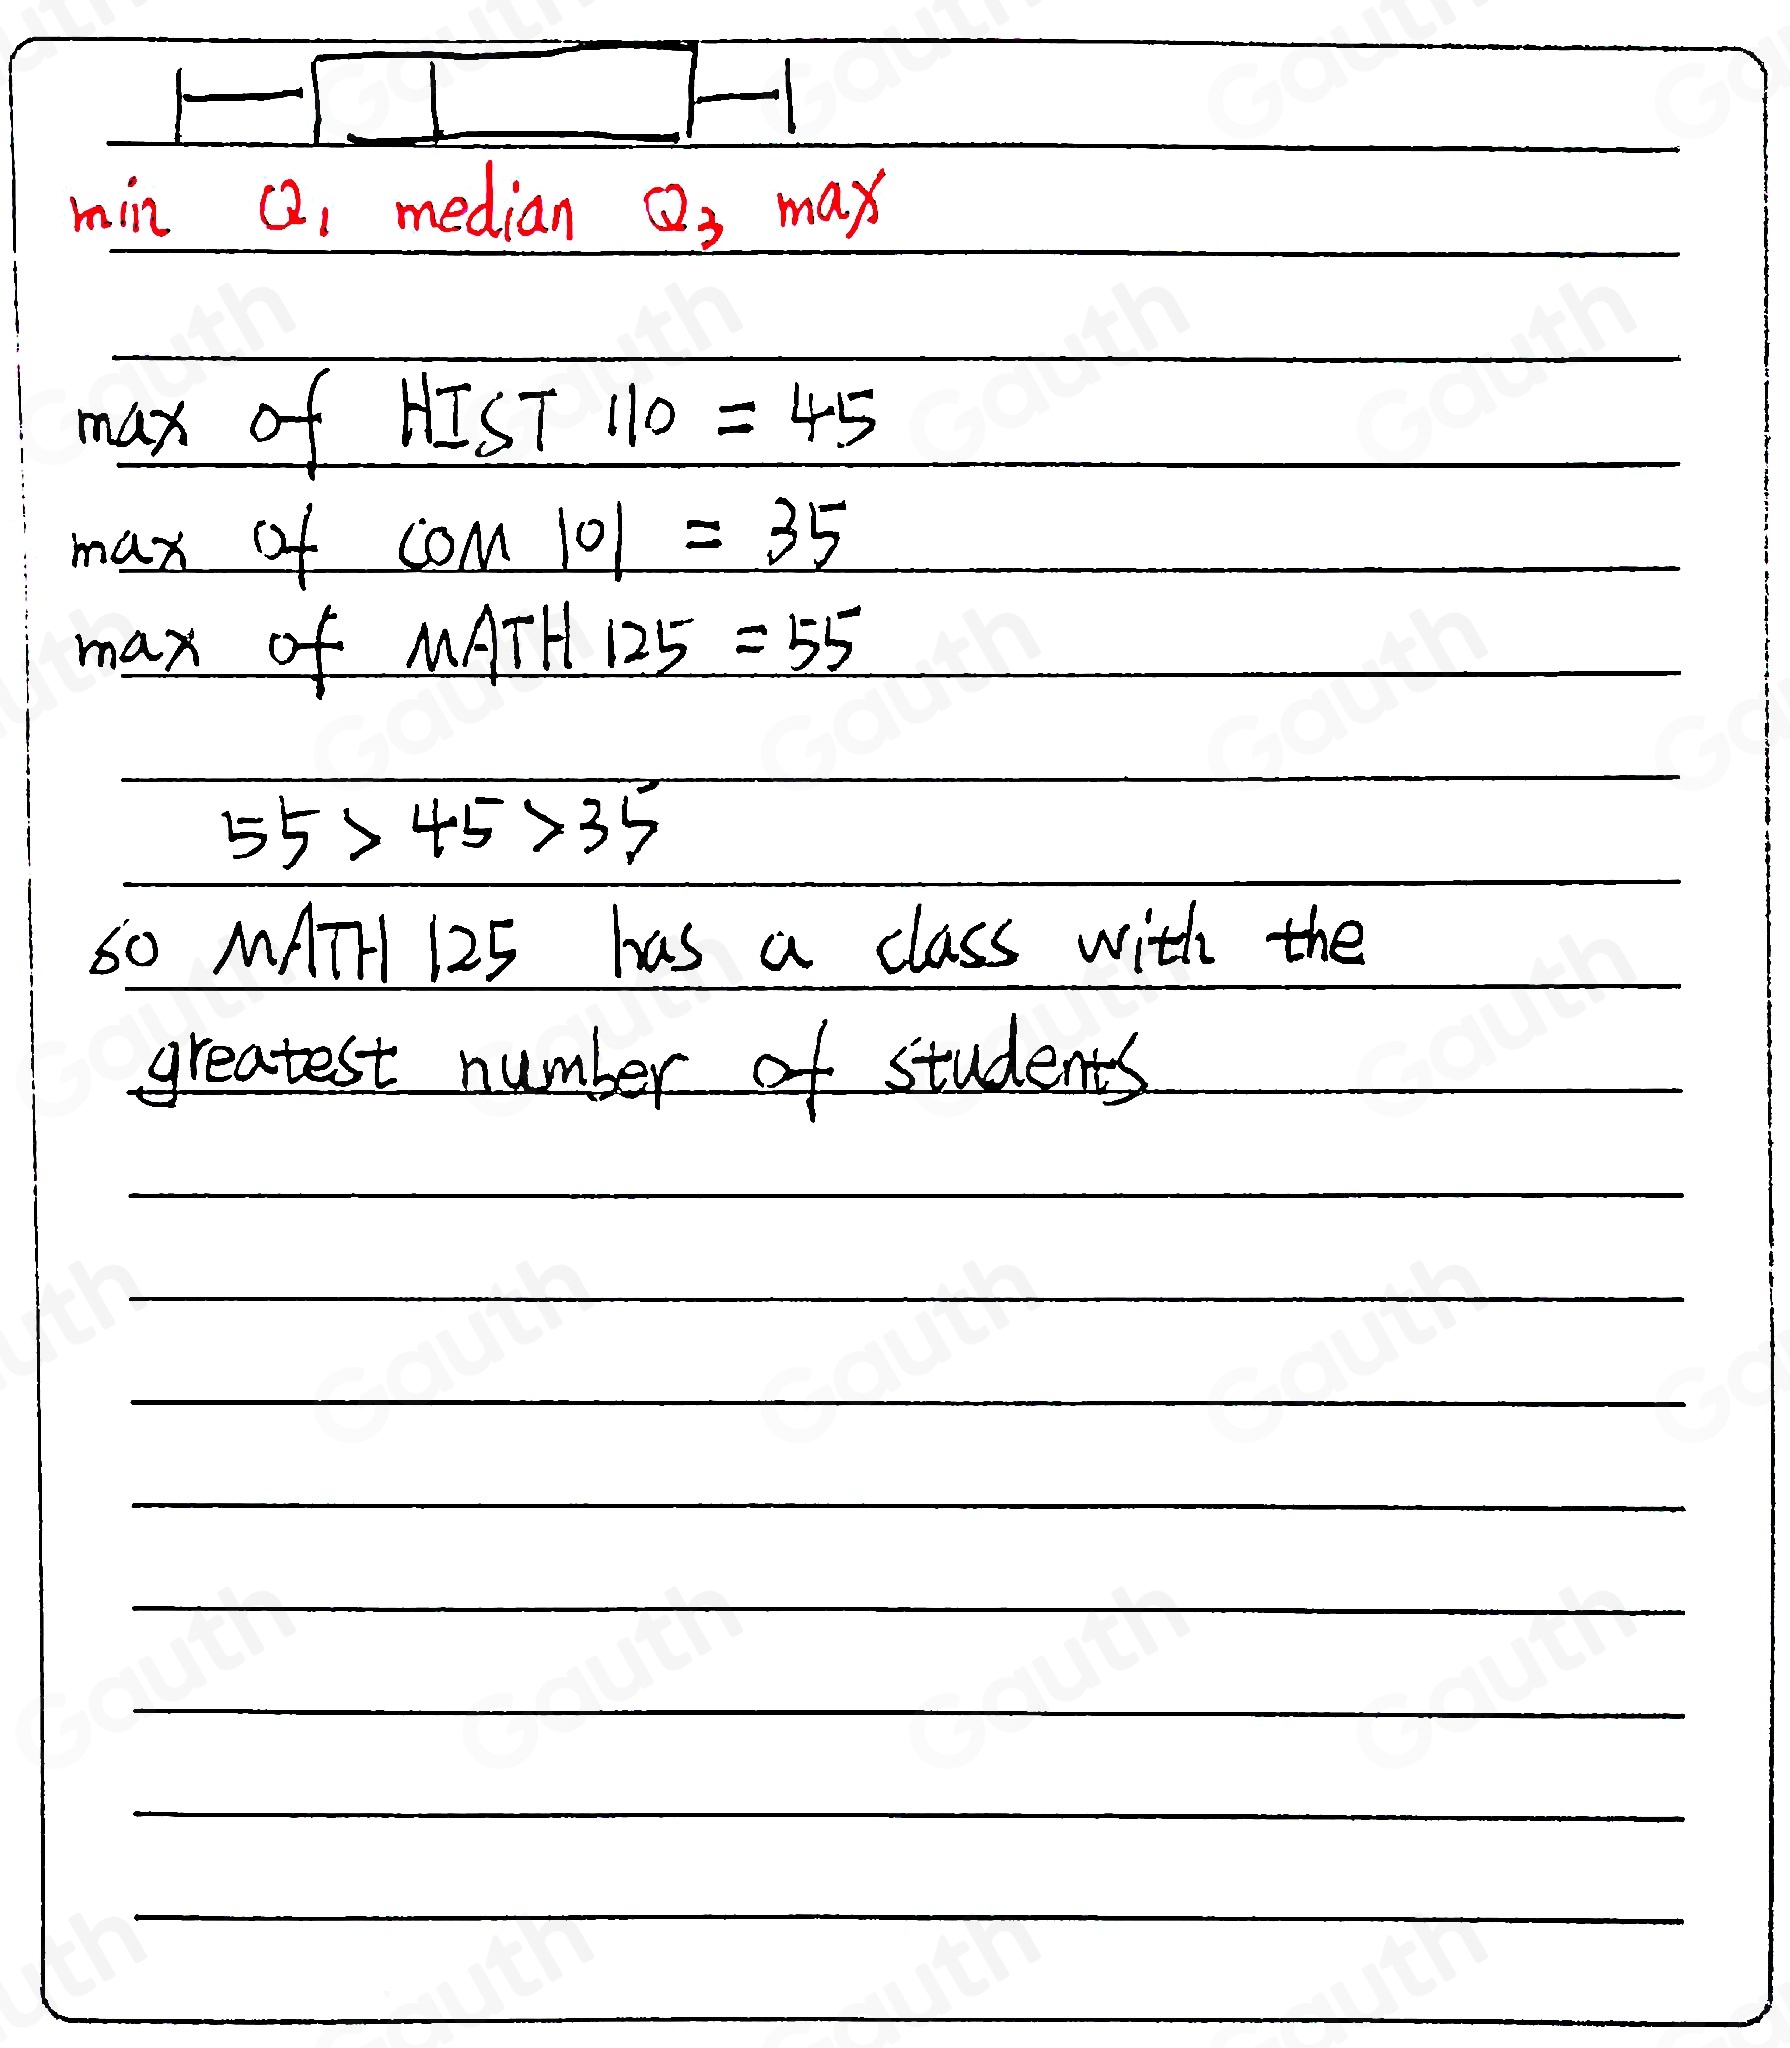 min Q₁ median Q₃ max
max of HIST 110 = 45
max of COM 101 = 35
max of MATH 125 = 55
55 > 45 > 35
so MATH 125 has a class with the
greatest number of students